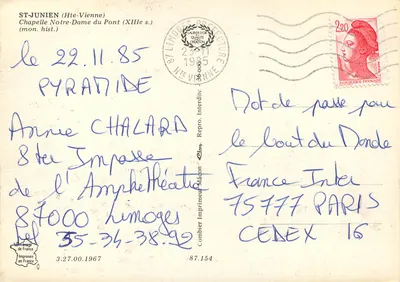 ST-JUNIEN (Hte-Vienne)
Chapelle Notre-Dame du Pont (XIIIe s.)
(mon. hist.)
le 22.11.85
PYRAMIDE
Annie CHALARD
8ter Impasse
de l'Amphithéatre
87000 Limoges
tel 55-34-38-92
3.27.00.1967
87.154
Combier Imprimeur Mâcon
Repro. Interdite
87 LIMOGES
1985
Hte VIENNE
2,20
Mot de passe pour
le bout du Monde
France Inter
75777 PARIS
CEDEX 16